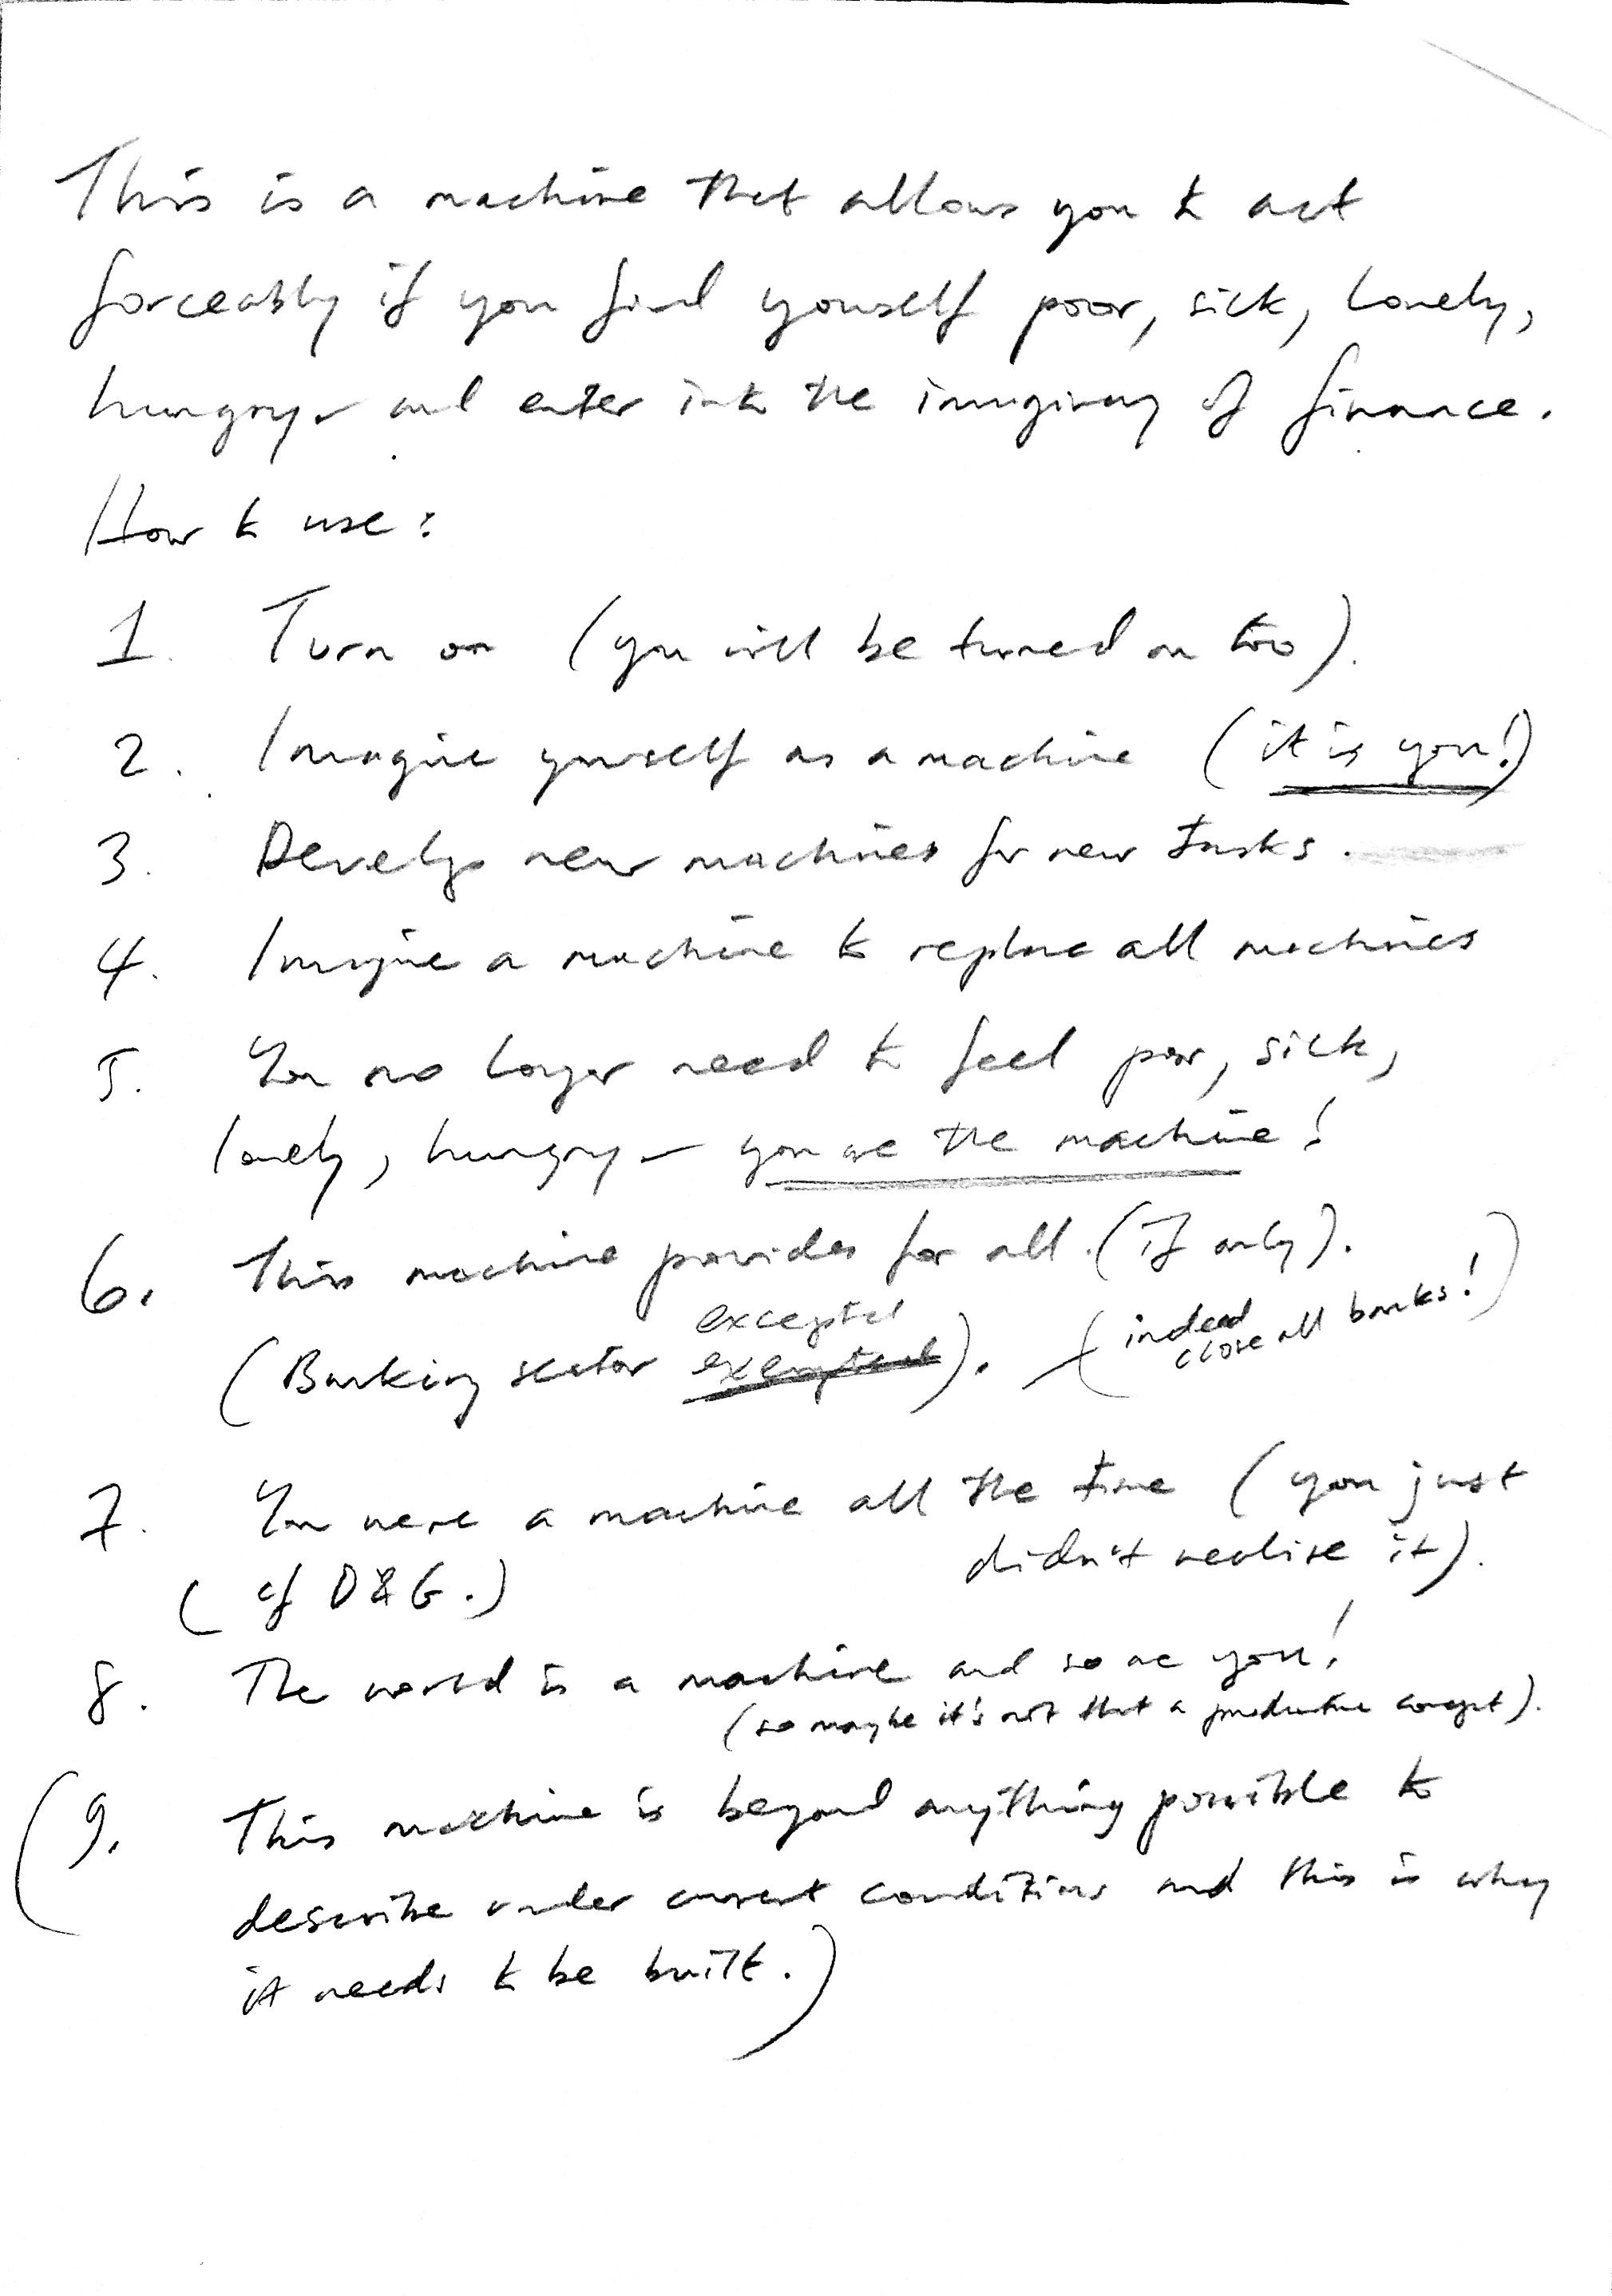 This is a machine that allows you to act
forceably if you find yourself poor, sick, lonely,
hungry – and enter into the imaginary of finance.
How to use:
1. Turn on (you will be turned on too).
2. Imagine yourself as a machine (it is you!)
3. Develop new machines for new tasks.
4. Imagine a machine to replace all machines
5. You no longer need to feel poor, sick,
lonely, hungry – you are the machine!
6. This machine provides for all. (If only).
excepted
(Banking sector exempted). – (indeed
close all banks!)
7. You were a machine all the time (you just
didn't realise it).
(cf D&G.)
8. The world is a machine and so are you!
(so maybe it's not that a productive concept).
(9. This machine is beyond anything possible to
describe under current conditions and this is why
it needs to be built.)